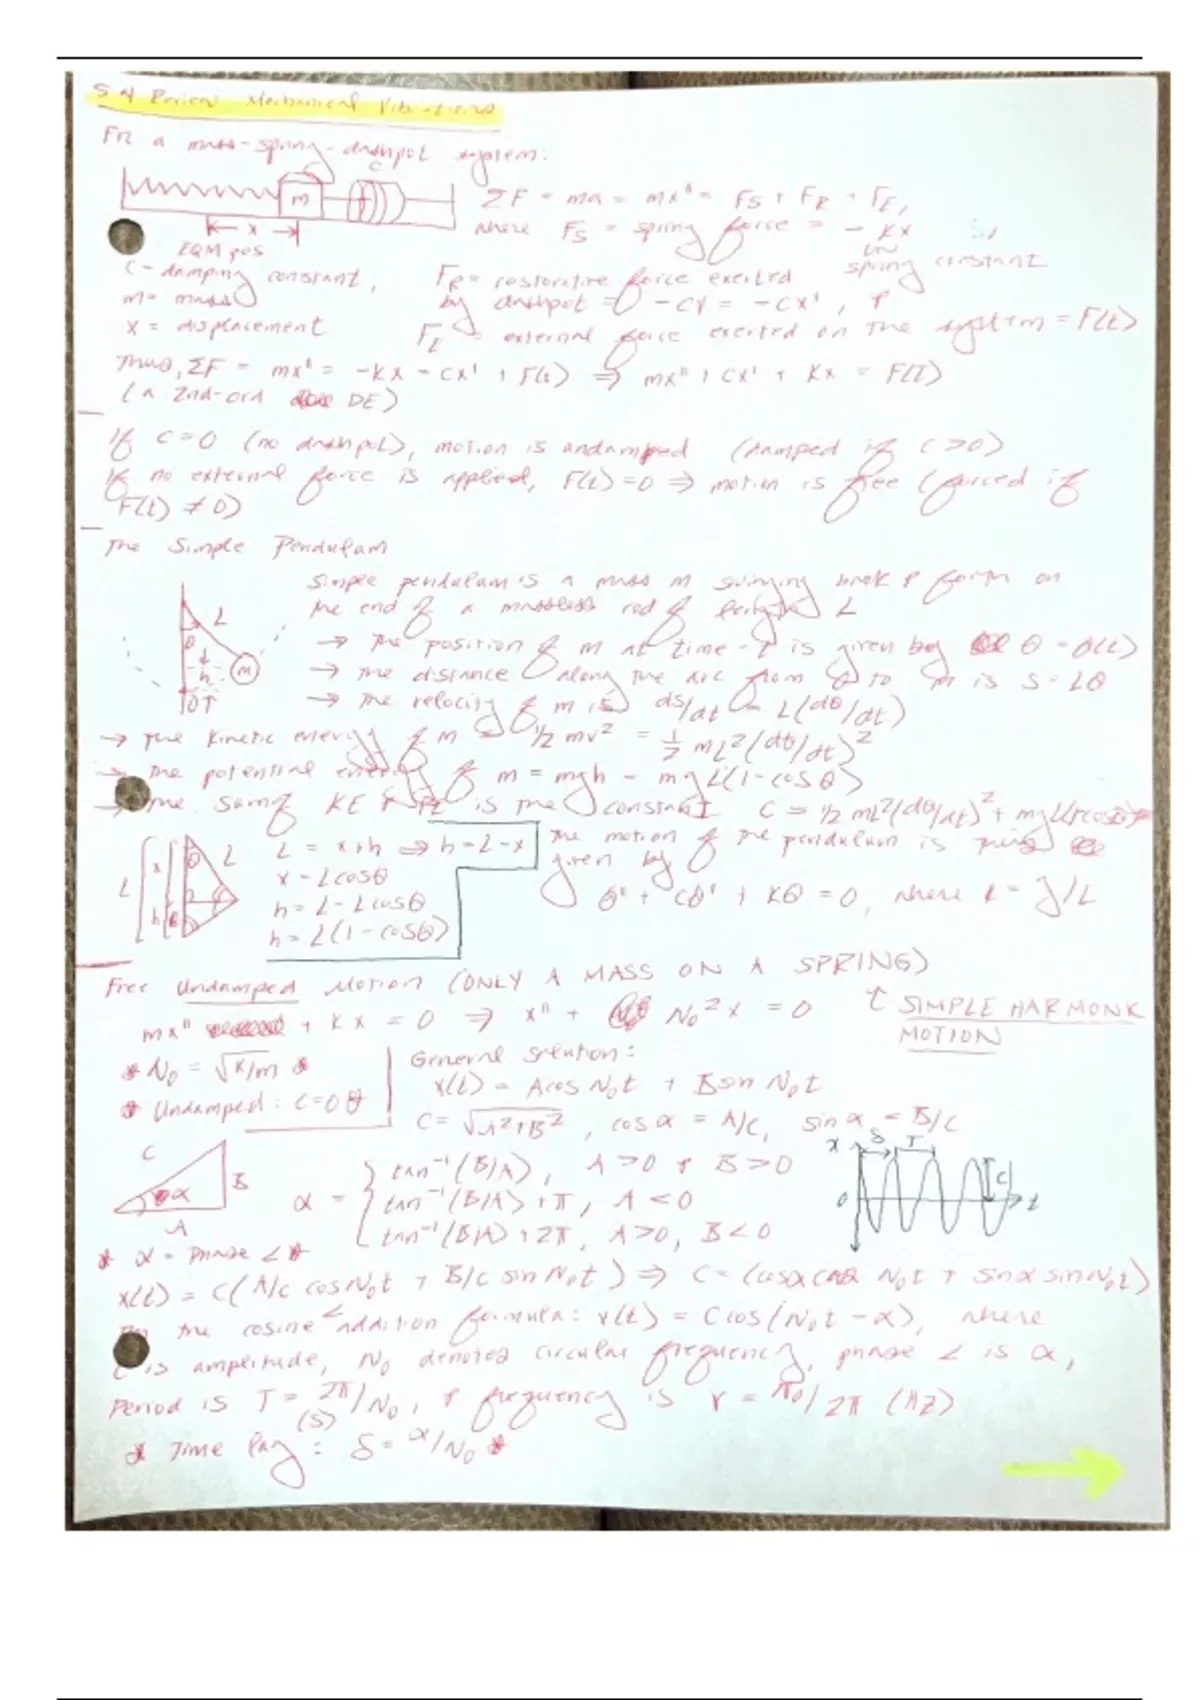 5.4 Review Mechanical Vibrations
For a mass-spring-dashpot system:
ΣF = ma = mx" = Fs + FR + FE,
m
where Fs = spring force = -kx
x
EQM pos
spring constant
c = damping constant,
FR = restorative force exerted
m = mass
by dashpot = -cv = -cx',
x = displacement
FE = external force exerted on the system = F(t)
Thus, ΣF = mx" = -kx - cx' + F(t) ⇒ mx" + cx' + kx = F(t)
(a 2nd-ord DE)
If c=0 (no dashpot), motion is undamped (damped if c>0)
If no external force is applied, F(t)=0 ⇒ motion is free (forced if
F(t) ≠ 0)
The Simple Pendulum
Simple pendulum is a mass m swinging back & forth on
the end of a massless rod of length L
→ The position of m at time-t is given by θ = θ(t)
→ The distance along the arc from 0 to m is s = Lθ
→ The velocity of m is ds/dt = L(dθ/dt)
→ The kinetic energy of m = 1/2 mv² = 1/2 mL²(dθ/dt)²
→ The potential energy of m = mgh = mgL(1-cosθ)
→ The sum of KE & PE is the constant C = 1/2 mL²(dθ/dt)² + mgL(1-cosθ)
L = x+h ⇒ h = L-x
The motion of the pendulum is
x = Lcosθ
given by
h = L - Lcosθ
θ" + cθ' + kθ = 0, where k = g/L
h = L(1-cosθ)
Free Undamped Motion (ONLY A MASS ON A SPRING)
mx" + kx = 0 ⇒ x" + N₀²x = 0
↑ SIMPLE HARMONIC
MOTION
* N₀ = √k/m *
General solution:
x(t) = Acos N₀t + Bsin N₀t
* Undamped: c=0 *
C = √A²+B², cos α = A/C, sin α = B/C
C
B
α
A
α =
tan⁻¹(B/A), A>0 & B>0
tan⁻¹(B/A)+π, A<0
tan⁻¹(B/A)+2π, A>0, B<0
x
δ
T
C
0
t
* α = Phase ∠ *
x(t) = C(A/C cosN₀t + B/C sin N₀t) ⇒ C = (cosα cos N₀t + sinα sinN₀t)
the cosine addition formula: x(t) = C cos(N₀t - α), where
C is amplitude, N₀ denotes circular frequency, phase ∠ is α,
Period is T = 2π/N₀, & frequency is v = N₀/2π (HZ)
(S)
* Time lag: δ = α/N₀ *